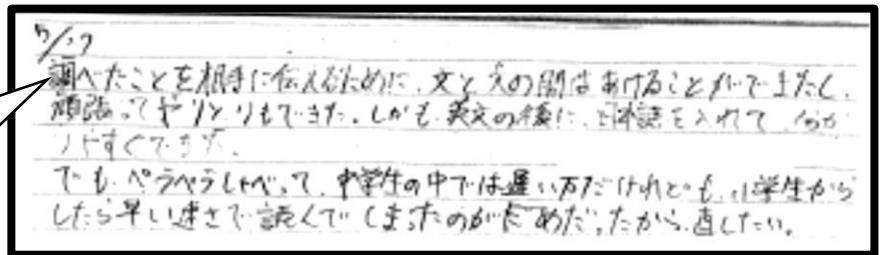 調べたことを相手に伝えるために、文と文の間はあけることができたし、
頑張ってやりとりもできた。しかも、英文の後に、日本語を入れて、わか
りやすくできた。
でも、ペラペラしゃべって、中学生の中では遅い方だけれども、小学生から
したら早い速さで読んでしまったのがだめだったから、直したい。